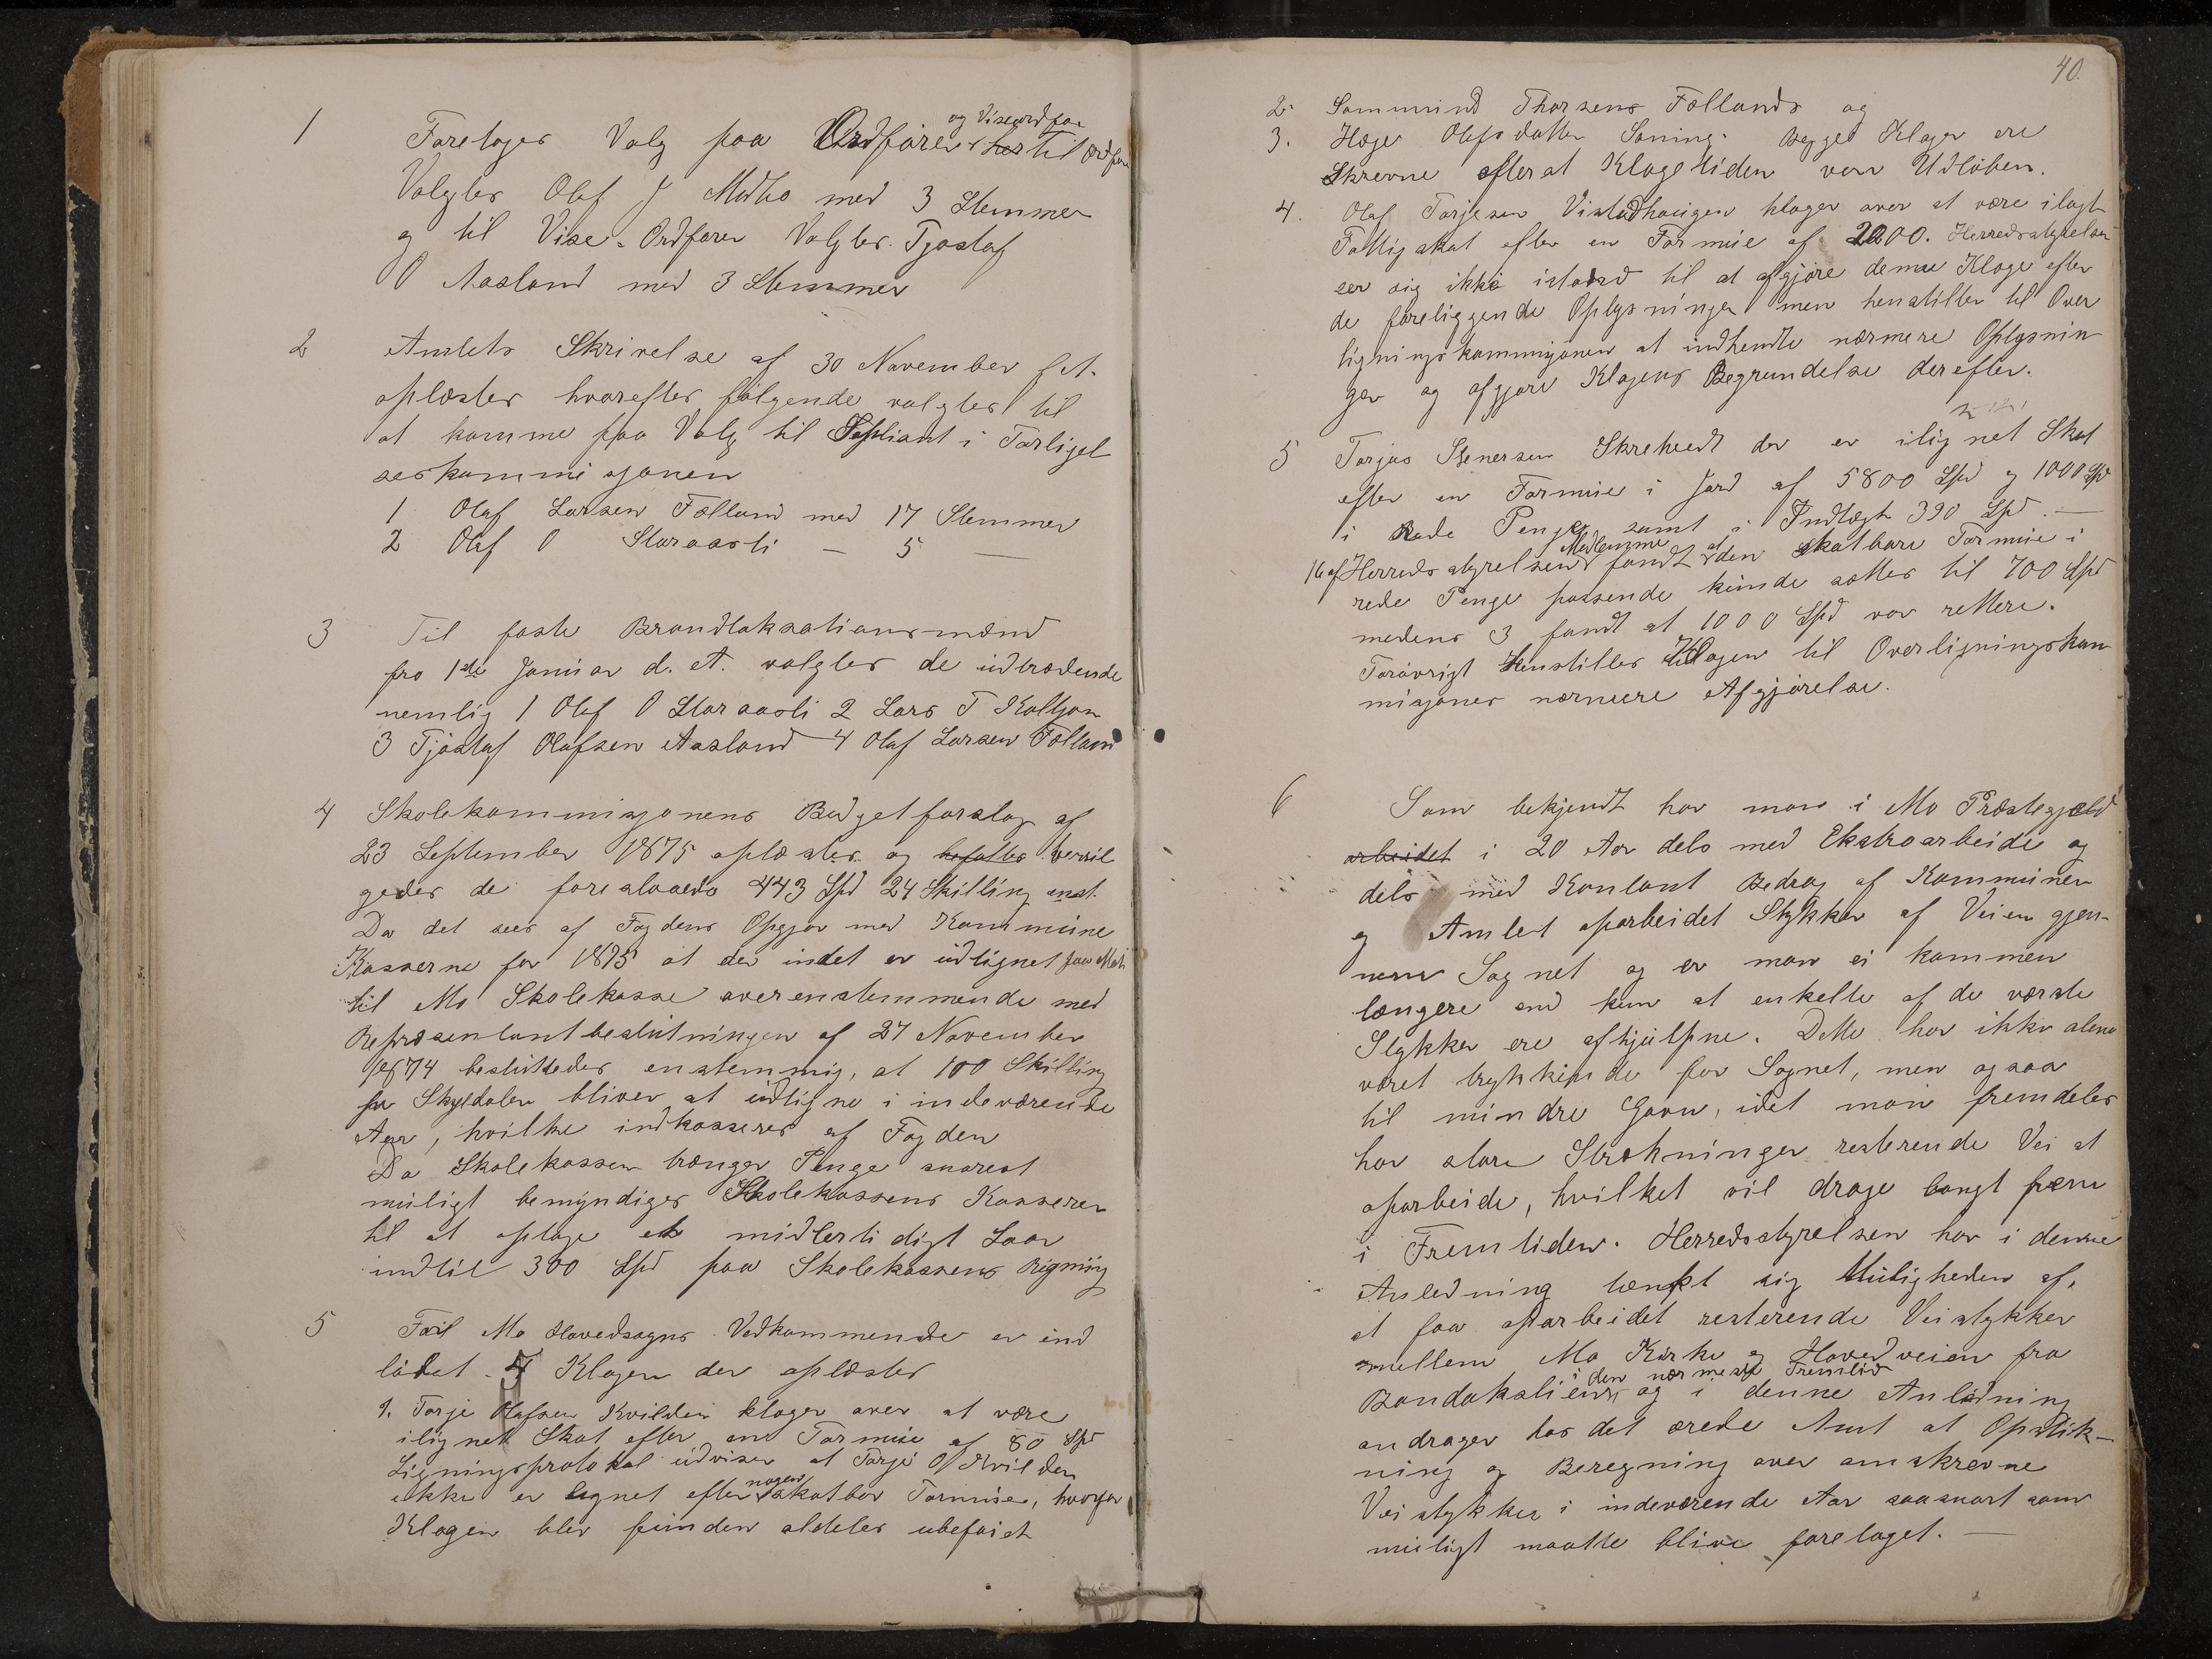 1 Foretoges Valg paa Ordfører og Viseordfør til Ordfør
Valgtes Olaf J Midbø med 3 Stemmer
og til Vise-Ordfører Valgtes Tjostolf
O Aasland med 3 Stemmer
2 Amtets Skrivelse af 30 November f. A.
oplæstes hvorefter følgende valgtes til
at komme paa Valg til Supliant i Forligel
seskommisjonen
1 Olaf Larsen Følland med 17 Stemmer
2 Olaf O Storaasli — 5 —
3 Til faste Brandtaksationsmænd
fra 1ste Januar d. A. valgtes de udtrædende
nemlig 1 Olaf O Storaasli 2 Lars T Kaltjon
3 Tjostaf Olafsen Aasland 4 Olaf Larsen Følland
4 Skolekommisjonens Budgetforslag af
23 September 1875 oplæstes og bevil
gedes de foreslaaede 443 Spd 24 Skilling enst.
Da det sees af Fogdens Opgjør med Kommune
Kasserne for 1875 at der intet er udlignet paa Mat
til Mo Skolekasse overenstemmende med
Repræsentantbeslutningen af 27 November
1874 besluttedes enstemmig, at 100 Skilling
pr Skyldaler bliver at udligne i indeværende
Aar, hvilke indkasseres af Fogden
Da Skolekassen trænger Penge snarest
muligt bemyndiges Skolekassens Kasserer
til at optage et midlertidigt Laan
indtil 300 Spd paa Skolekassens Regning
5 For Mo Hovedsogns Vedkommende er ind
løbet 5 Klager der oplæstes
1. Torje Olafsen Kvilden klager over at være
ilignet Skat efter en Formue af 80 Spd
Ligningsprotokol udviser at Torje O Kvilden
ikke er lignet efter nogen skatbar Formue, hvorfor
Klagen blev funden aldeles ubeføiet
40.
2. Sammund Thorsens Føllands og
3. Hæge Olafsdatter Saning. Begges Klager ere
Skrevne efterat Klagetiden var Udløben.
4. Olaf Torjesen Vistadhaugen klager over at være ilagt
Fattigskat efter en Formue af 2000. Herredsstyrelsen
ser sig ikke istand til at afgjøre denne Klage efter
de foreliggende Oplysninger men henstiller til Over
ligningskommisjonen at indhente nærmere Oplysnin
ger og afgjøre Klagens Begrundelse derefter.
5 Torjus Stenersen Skreheedt der er ilignet Skat
efter en Formue i Jord af 5800 Spd og 1000 Spd
i Rede Penge samt i Indtægt 390 Spd. —
16 af Herredsstyrelsens Medlemme fandt at den skatbare Formue i
rede Penge passende kunde sættes til 700 Spd
medens 3 fandt at 1000 Spd var rettere.
Forøvrigt Henstilles Klagen til Overligningskom
misjones nærmere Afgjørelse.
6 Som bekjendt har man i Mo Præstegjeld
arbeidet i 20 Aar dels med Ekstraarbeide og
dels med Kontant Bedrag af Kommunen
og Amtet oparbeidet Stykker af Veien gjen-
nem Sognet og er man ei kommen
længere end kun at enkelte af de værste
Stykker ere afhjulpne. Dette har ikke alene
været trykkende for Sognet, men ogsaa
til mindre Gavn, idet man fremdeles
har store Strækninger resterende Vei at
oparbeide, hvilket vil drage langt frem
i Fremtiden. Herredsstyrelsen har i denne
Anledning tænkt sig Muligheden af,
at faa oparbeidet resterende Veistykker
mellem Mo Kirke og Hovedveien fra
Bandakslien i den nærmeste Fremtid og i denne Anledning
andrager hos det ærede Amt at Opstik-
ning og Beregning over omskrevne
Veistykker i indeværende Aar saasnart som
muligt maatte blive foretaget. —